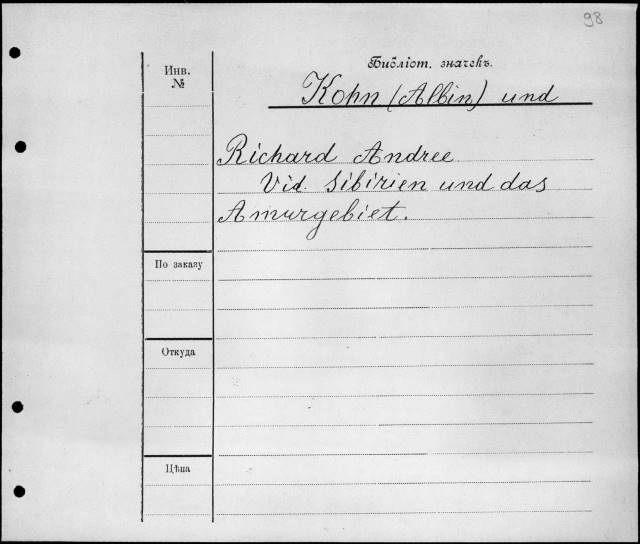 98
Инв.
№
Библіот. значекъ.
Kohn (Albin) und
Richard Andree
Vid. Sibirien und das
Amurgebiet.
По заказу
Откуда
Цѣна